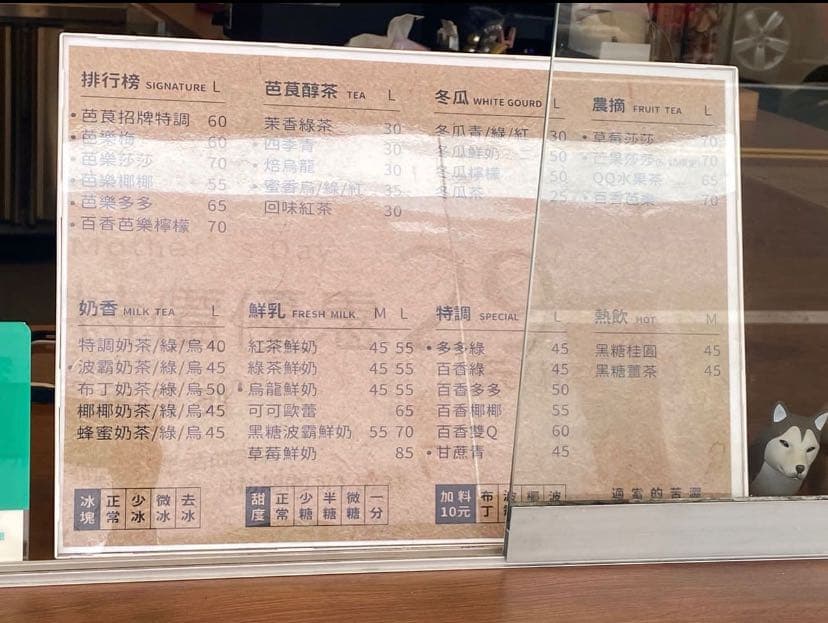 排行榜 SIGNATURE L
•芭莨招牌特調 60
•芭樂梅 60
•芭樂莎莎 70
•芭樂椰椰 55
•芭樂多多 65
•百香芭樂檸檬 70
芭莨醇茶 TEA L
茉香綠茶 30
•四季青 30
•焙烏龍 30
•蜜香烏/綠/紅 35
回味紅茶 30
冬瓜 WHITE GOURD L
冬瓜青/綠/紅 30
冬瓜鮮奶 50
冬瓜檸檬 50
冬瓜茶 25
農摘 FRUIT TEA L
•草莓莎莎 70
•芒果莎莎 70
QQ水果茶 65
•百香芭樂 70
奶香 MILK TEA L
特調奶茶/綠/烏 40
•波霸奶茶/綠/烏 45
布丁奶茶/綠/烏 50
椰椰奶茶/綠/烏 45
蜂蜜奶茶/綠/烏 45
鮮乳 FRESH MILK M L
紅茶鮮奶 45 55
綠茶鮮奶 45 55
•烏龍鮮奶 45 55
可可歐蕾 65
黑糖波霸鮮奶 55 70
草莓鮮奶 85
特調 SPECIAL L
•多多綠 45
百香綠 45
百香多多 50
百香椰椰 55
百香雙Q 60
•甘蔗青 45
熱飲 HOT M
黑糖桂圓 45
黑糖薑茶 45
冰塊 正常 少冰 微冰 去冰
甜度 正常 少糖 半糖 微糖 一分
加料10元 布丁 波 椰 波